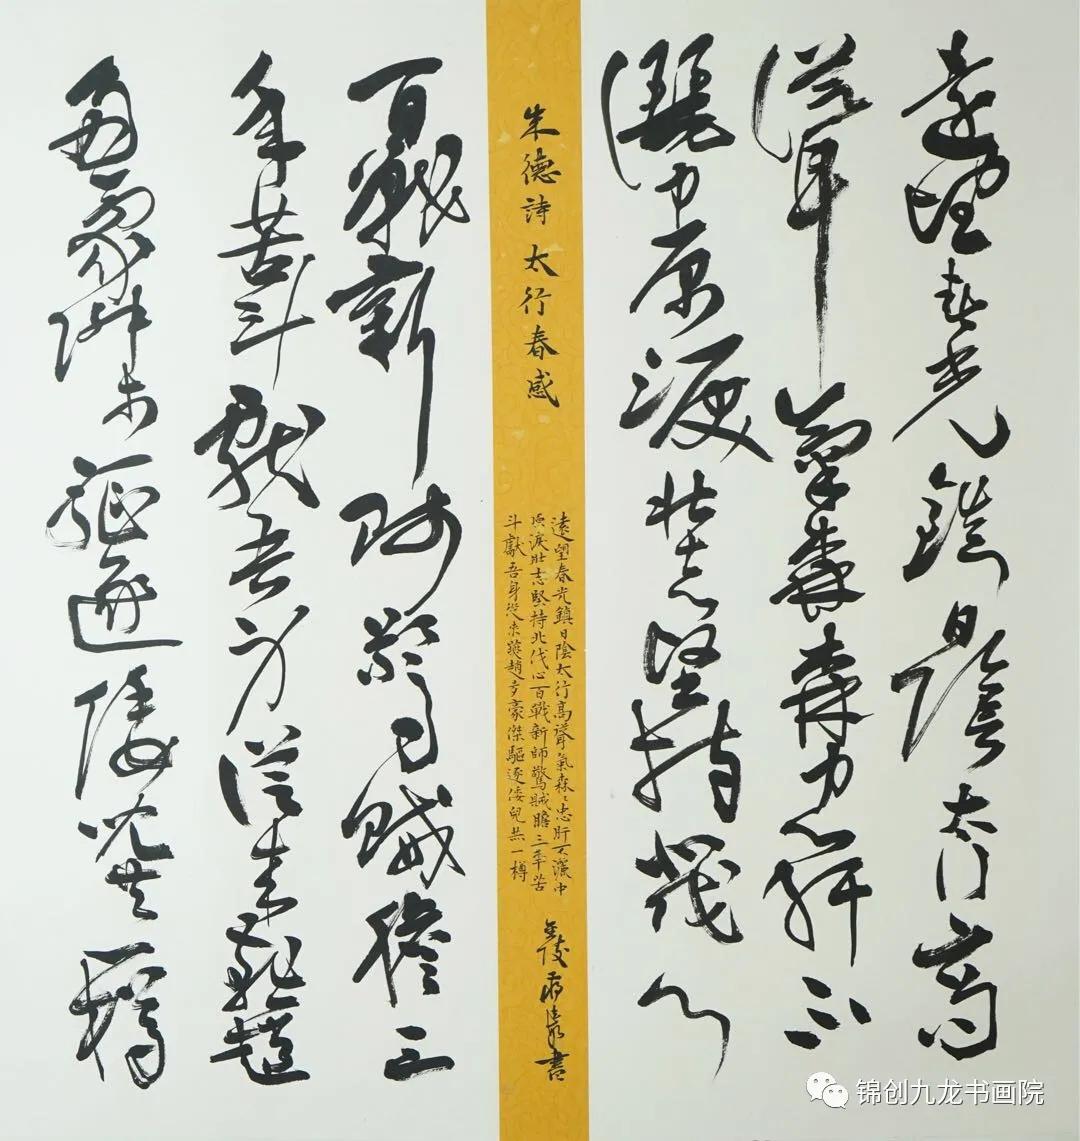 遠望春光鎮日陰太行高
聳氣森森忠肝不
灑中原淚壯志堅持北伐心
朱德詩 太行春感
遠望春光鎮日陰太行高聳氣森〻忠肝不灑中
原淚壯志堅持北伐心百戰新師驚賊膽三秊苦
斗獻吾身從來燕趙多豪傑驅逐倭兒共一樽
金陵 書
百戰新師驚賊膽三
年苦斗獻吾身從來燕趙
多豪傑驅逐倭兒共一樽
锦创九龙书画院